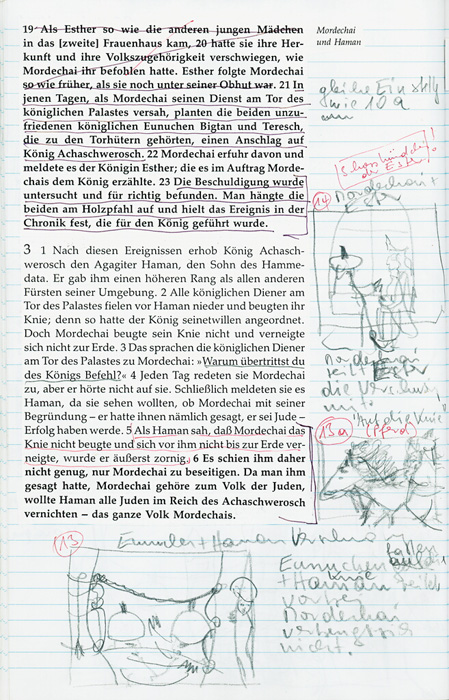 19 Als Esther so wie die anderen jungen Mädchen
in das [zweite] Frauenhaus kam, 20 hatte sie ihre Her-
kunft und ihre Volkszugehörigkeit verschwiegen, wie
Mordechai ihr befohlen hatte. Esther folgte Mordechai
so wie früher, als sie noch unter seiner Obhut war. 21 In
jenen Tagen, als Mordechai seinen Dienst am Tor des
königlichen Palastes versah, planten die beiden unzu-
friedenen königlichen Eunuchen Bigtan und Teresch,
die zu den Torhütern gehörten, einen Anschlag auf
König Achaschwerosch. 22 Mordechai erfuhr davon und
meldete es der Königin Esther; die es im Auftrag Morde-
chais dem König erzählte. 23 Die Beschuldigung wurde
untersucht und für richtig befunden. Man hängte die
beiden am Holzpfahl auf und hielt das Ereignis in der
Chronik fest, die für den König geführt wurde.
3 1 Nach diesen Ereignissen erhob König Achasch-
werosch den Agagiter Haman, den Sohn des Hamme-
data. Er gab ihm einen höheren Rang als allen anderen
Fürsten seiner Umgebung. 2 Alle königlichen Diener am
Tor des Palastes fielen vor Haman nieder und beugten ihr
Knie; denn so hatte der König seinetwillen angeordnet.
Doch Mordechai beugte sein Knie nicht und verneigte
sich nicht zur Erde. 3 Das sprachen die königlichen Diener
am Tor des Palastes zu Mordechai: »Warum übertrittst du
des Königs Befehl?« 4 Jeden Tag redeten sie Mordechai
zu, aber er hörte nicht auf sie. Schließlich meldeten sie es
Haman, da sie sehen wollten, ob Mordechai mit seiner
Begründung – er hatte ihnen nämlich gesagt, er sei Jude –
Erfolg haben werde. 5 Als Haman sah, daß Mordechai das
Knie nicht beugte und sich vor ihm nicht bis zur Erde ver-
neigte, wurde er äußerst zornig. 6 Es schien ihm daher
nicht genug, nur Mordechai zu beseitigen. Da man ihm
gesagt hatte, Mordechai gehöre zum Volk der Juden,
wollte Haman alle Juden im Reich des Achaschwerosch
vernichten – das ganze Volk Mordechais.
Mordechai
und Haman
gleiche Einstellg
wie 10a
Mordechai +
14
Mordechai
teilt
die
mit.
"auf die Knie"
13a (Pferd)
13
Eunuchen + Haman
Eunuchen
+ Haman
Knie
vor
Mordechai
nicht.